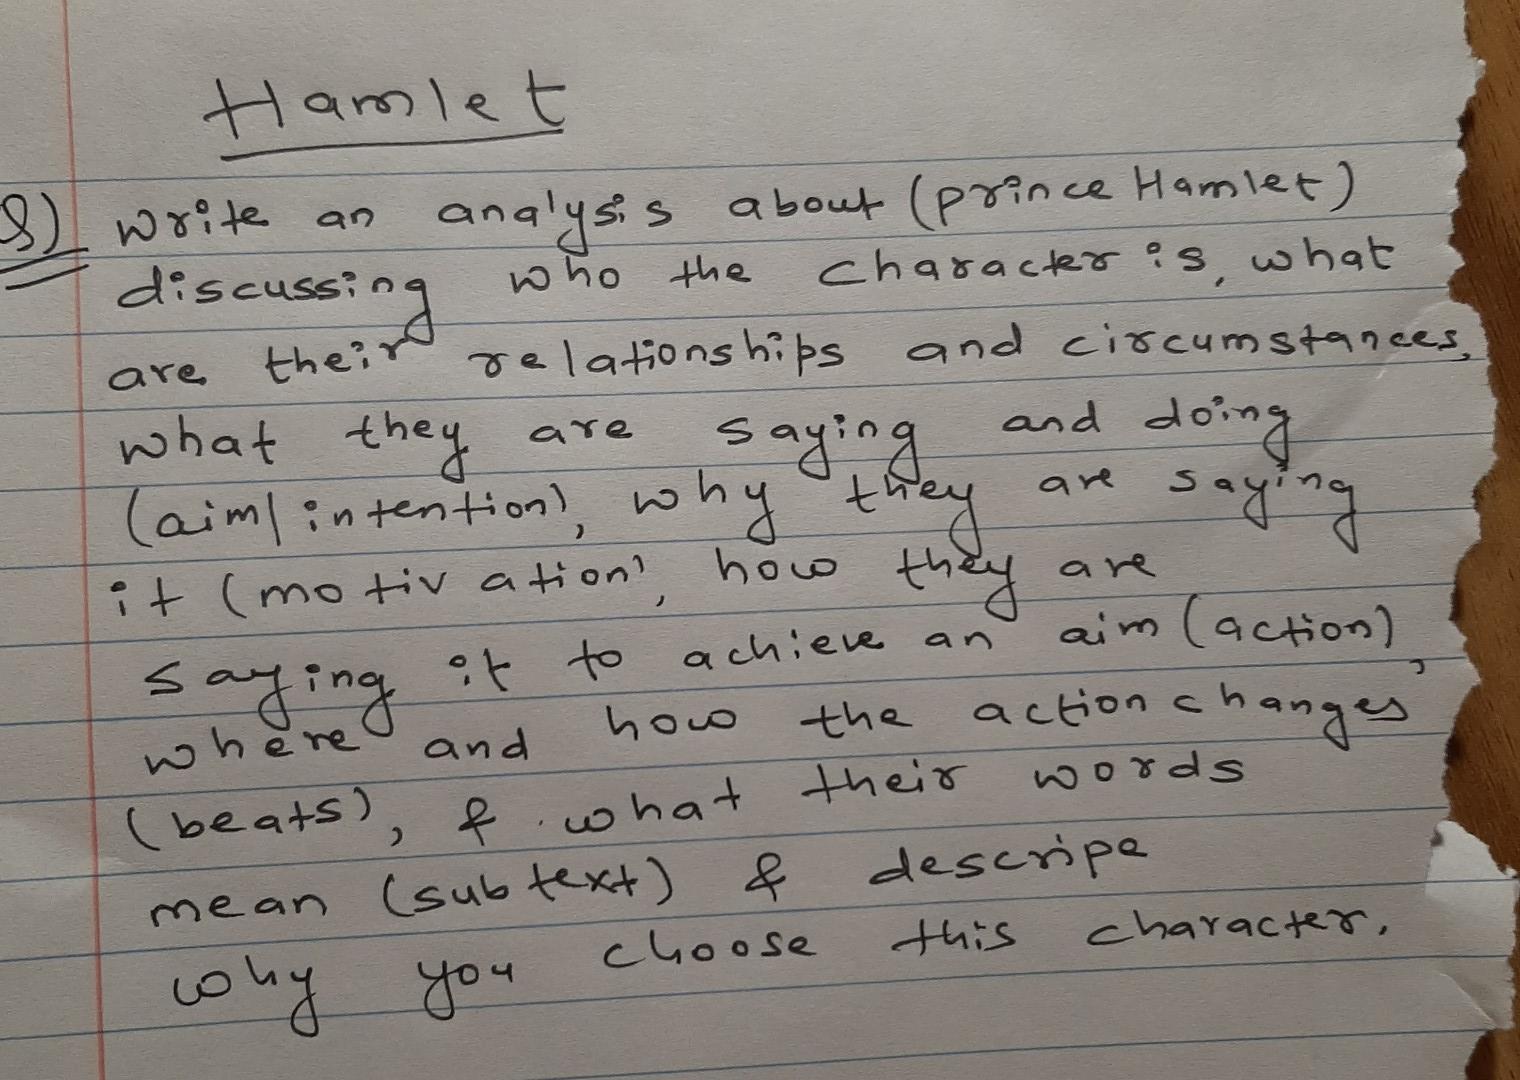 Hamlet
Q) write an analysis about (prince Hamlet)
discussing who the character is, what
are their relationships and circumstances,
what they are saying and doing
(aim/intention), why they are saying
it (motivation), how they are
saying it to achieve an aim (action),
where and how the action changes
(beats), & what their words
mean (subtext) & descripe
why you choose this character.